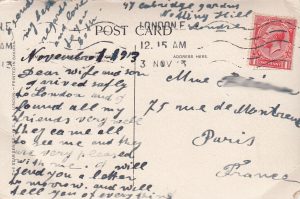 47 oxbridge gardens
Notting Hill
London
POST CARD
LONDON
12.15 AM
3 NOV
ADDRESS HERE
November 1 1913
Dear wife and son
arrived safly
to London and I
found all my
friends very well
they came all
to see me and they
are very pleased
with me. I will
send you a letter
to morrow, and will
tell you of everything
Mme
75 rue de Montreuil
Paris
France